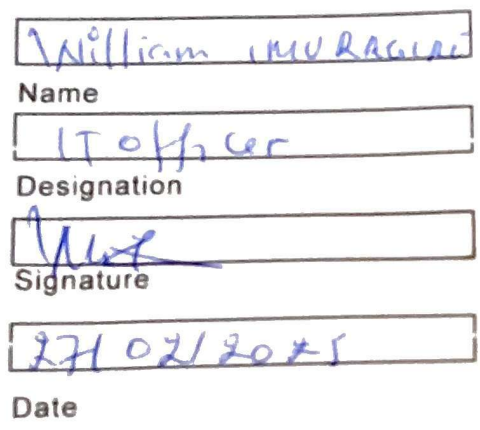 William
Name
IT Officer
Designation
Signature
27/02/2025
Date